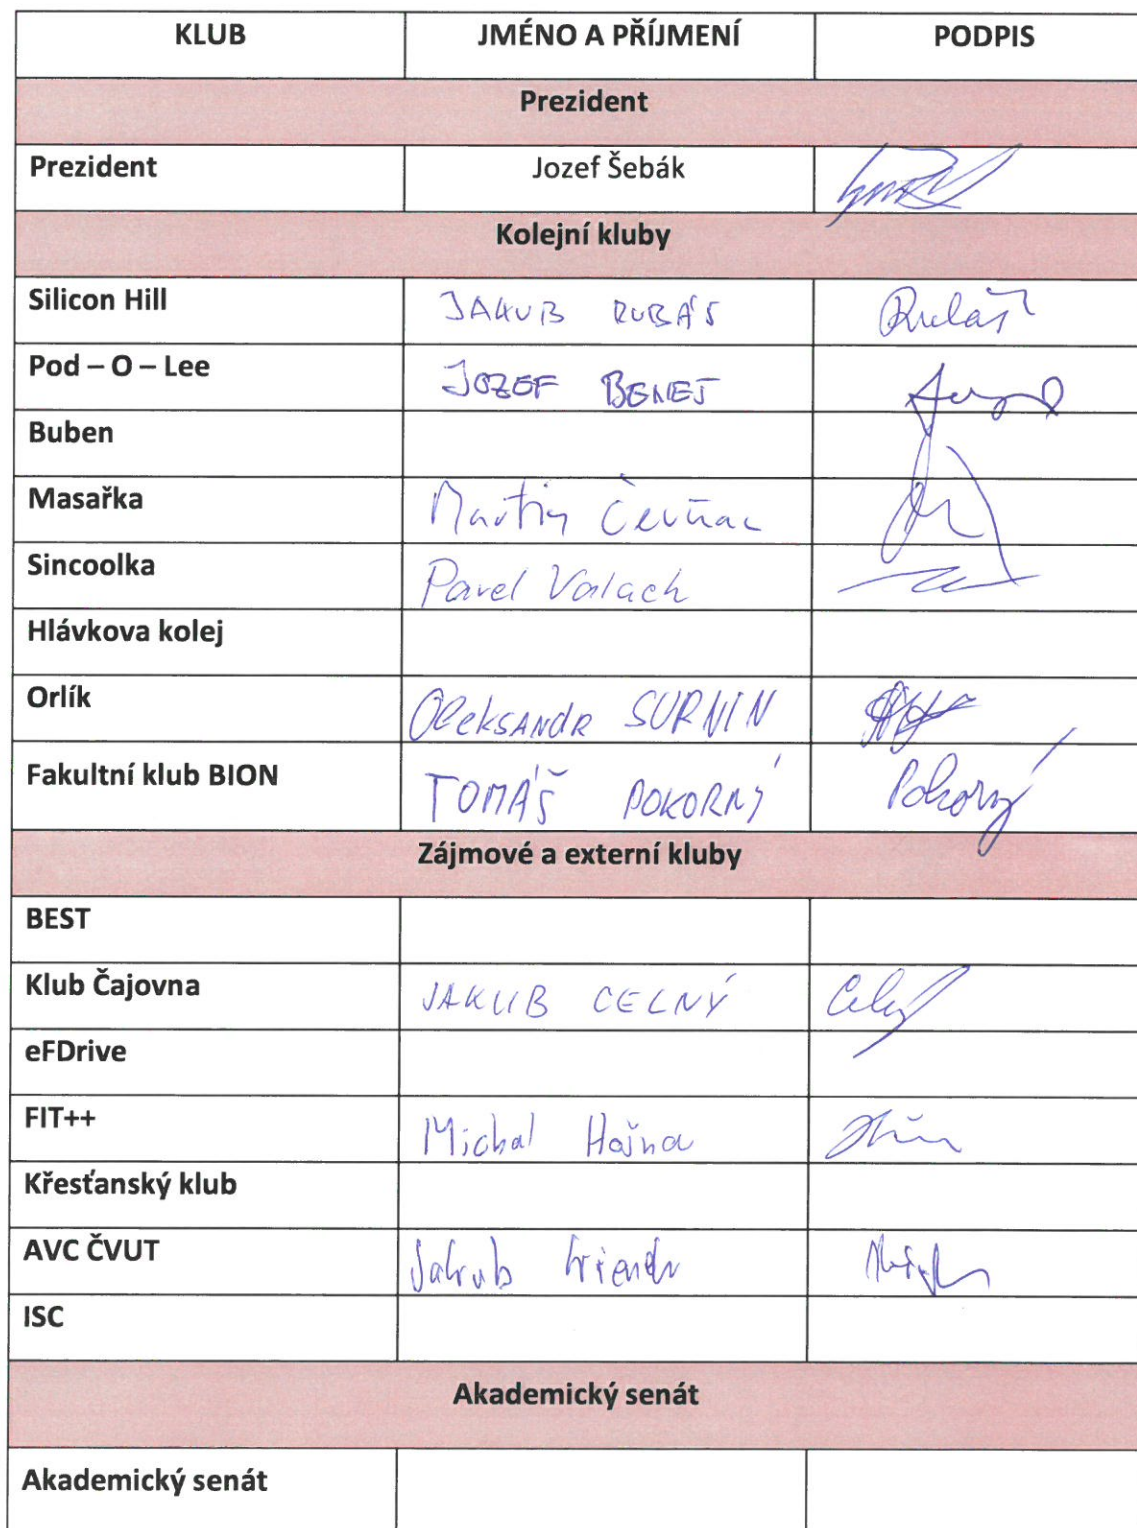 KLUB JMÉNO A PŘÍJMENÍ PODPIS
Prezident
Prezident Jozef Šebák
Kolejní kluby
Silicon Hill JAKUB RUBÁŠ Rubáš
Pod – O – Lee JOZEF BENEJ
Buben
Masařka Martin Červňac
Sincoolka Pavel Valach
Hlávkova kolej
Orlík Oleksandr SURNIN
Fakultní klub BION TOMÁŠ POKORNÝ Pokorný
Zájmové a externí kluby
BEST
Klub Čajovna JAKUB CELNÝ
eFDrive
FIT++ Michal Hojna
Křesťanský klub
AVC ČVUT Jakub
ISC
Akademický senát
Akademický senát